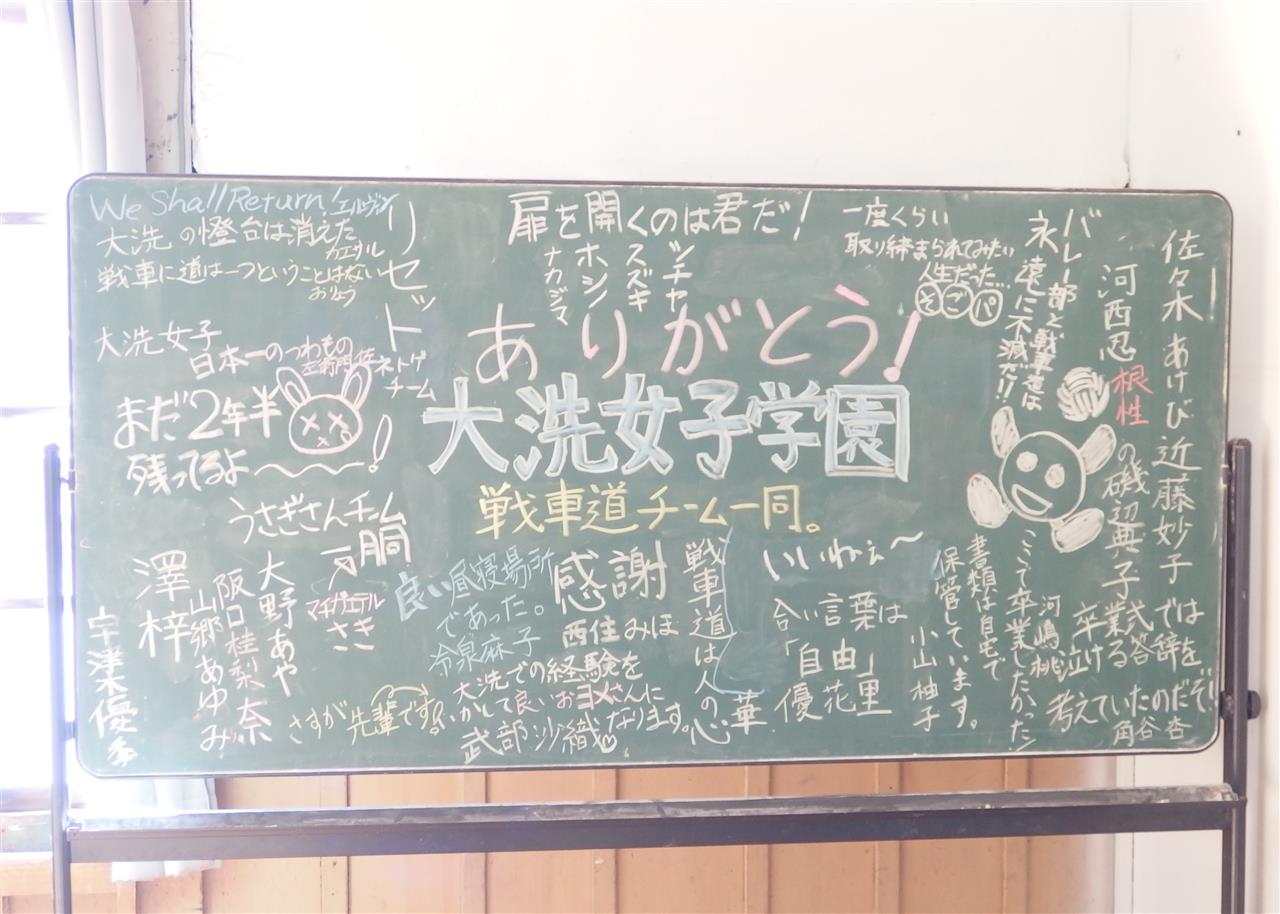 We Shall Return! エルヴィン
大洗の燈台は消えた
カエサル
戦車に道は一つということはない
おりょう
大洗女子
日本一のつわもの
左衛門佐
リセット
ネトゲ
チーム
扉を開くのは君だ!
ナカジマ
ホシノ
スズキ
ツチヤ
一度くらい
取り締まられてみたい
人生だった…
そど パ
バレー部と戦車道は
永遠に不滅だ!!
佐々木あけび 近藤妙子
河西忍 根性の磯辺典子
ありがとう!
大洗女子学園
戦車道チーム一同。
まだ2年半
残ってるよ〜!
うさぎさんチーム
一同
澤梓
宇津木優季
山郷あゆみ
阪口桂梨奈
大野あや
マチガエテル
さき
さすが先輩です。
良い昼寝場所
であった。
冷泉麻子
感謝
西住みほ
大洗での経験を
いかして良いおヨメさんに
なります。
武部沙織
戦車道は人の心
華
いいねぇ〜
合い言葉は
「自由」
優花里
書類は自宅で
保管しています。
小山柚子
ここで卒業したかった!
河嶋桃
卒業式では
泣ける答辞を
考えていたのだぞ!
角谷杏